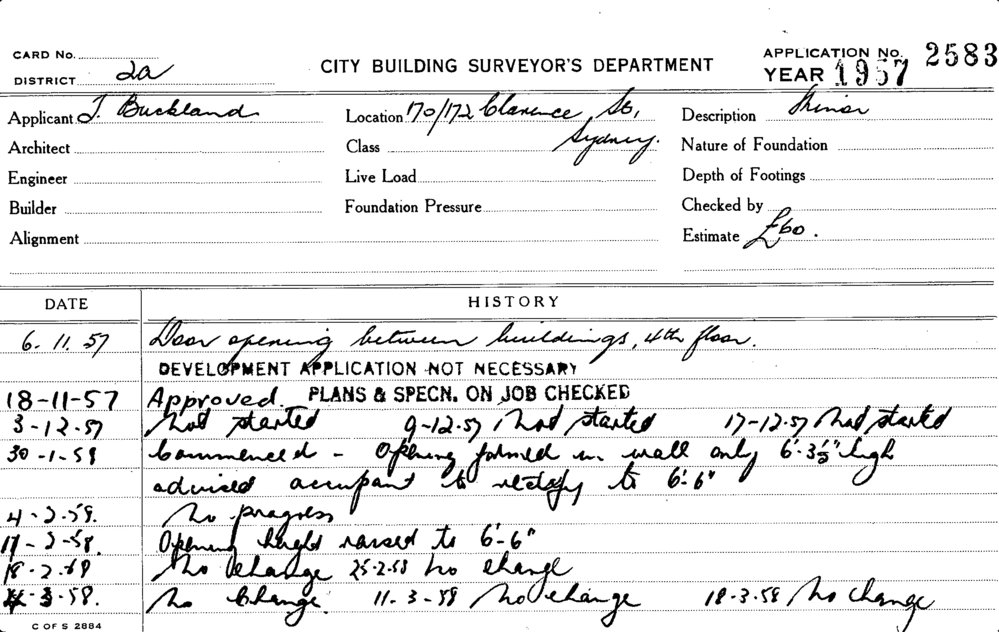 CARD No.
DISTRICT 2a
CITY BUILDING SURVEYOR'S DEPARTMENT
APPLICATION No. 2583
YEAR 1957
Applicant J. Buckland
Location 170/172 Clarence St, Sydney.
Description Minor
Architect
Class
Nature of Foundation
Engineer
Live Load
Depth of Footings
Builder
Foundation Pressure
Checked by
Alignment
Estimate £60.
DATE HISTORY
6. 11. 57 Door opening between buildings, 4th floor.
DEVELOPMENT APPLICATION NOT NECESSARY
18-11-57 Approved. PLANS & SPECN. ON JOB CHECKED
3-12-57 Not started 9-12-57 Not started 17-12-57 Not started
30-1-58 Commenced - Opening formed in wall only 6'-3½" high
advised occupant to rectify to 6'-6"
4-2-58. No progress
11-2-58. Opening height raised to 6'-6"
18-2-58 No change 25-2-58 No change
4-3-58. No Change. 11-3-58 No change 18-3-58 No change
C OF S 2884